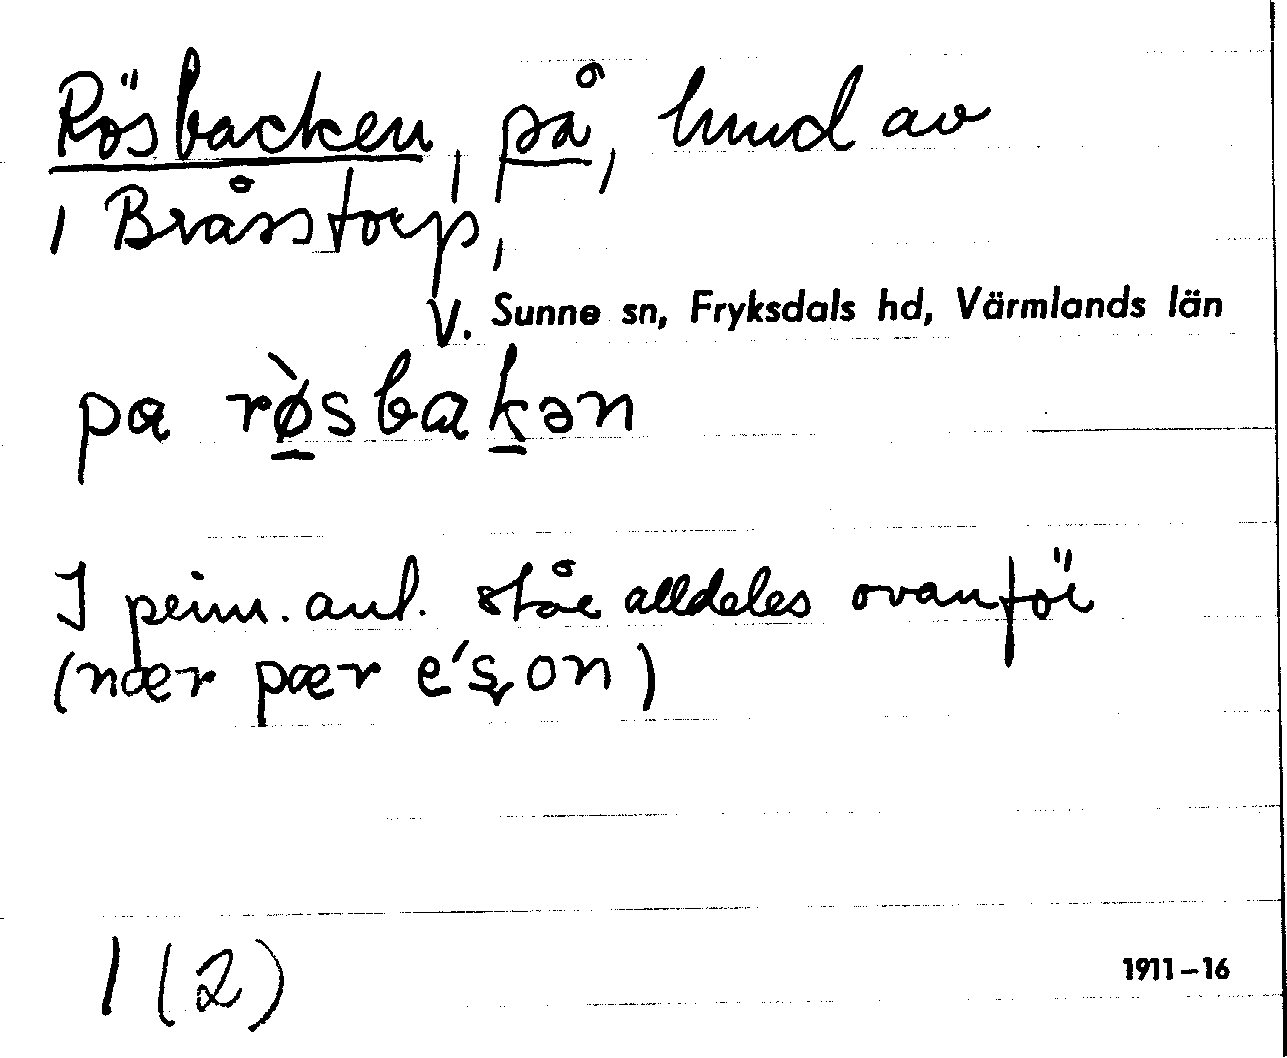 Rösbacken, på, hund av
i Bråsstorp,
V. Sunne sn, Fryksdals hd, Värmlands län
pa rø̀sbakən
I prim. anl. står alldeles ovanför
(nær pær e'ʂon)
1 (2)
1911–16